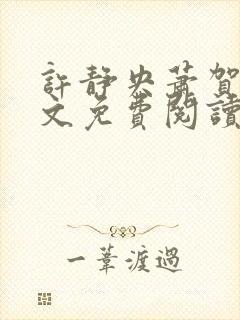 許靜央蕭賀
文免費閱讀
一葦渡過